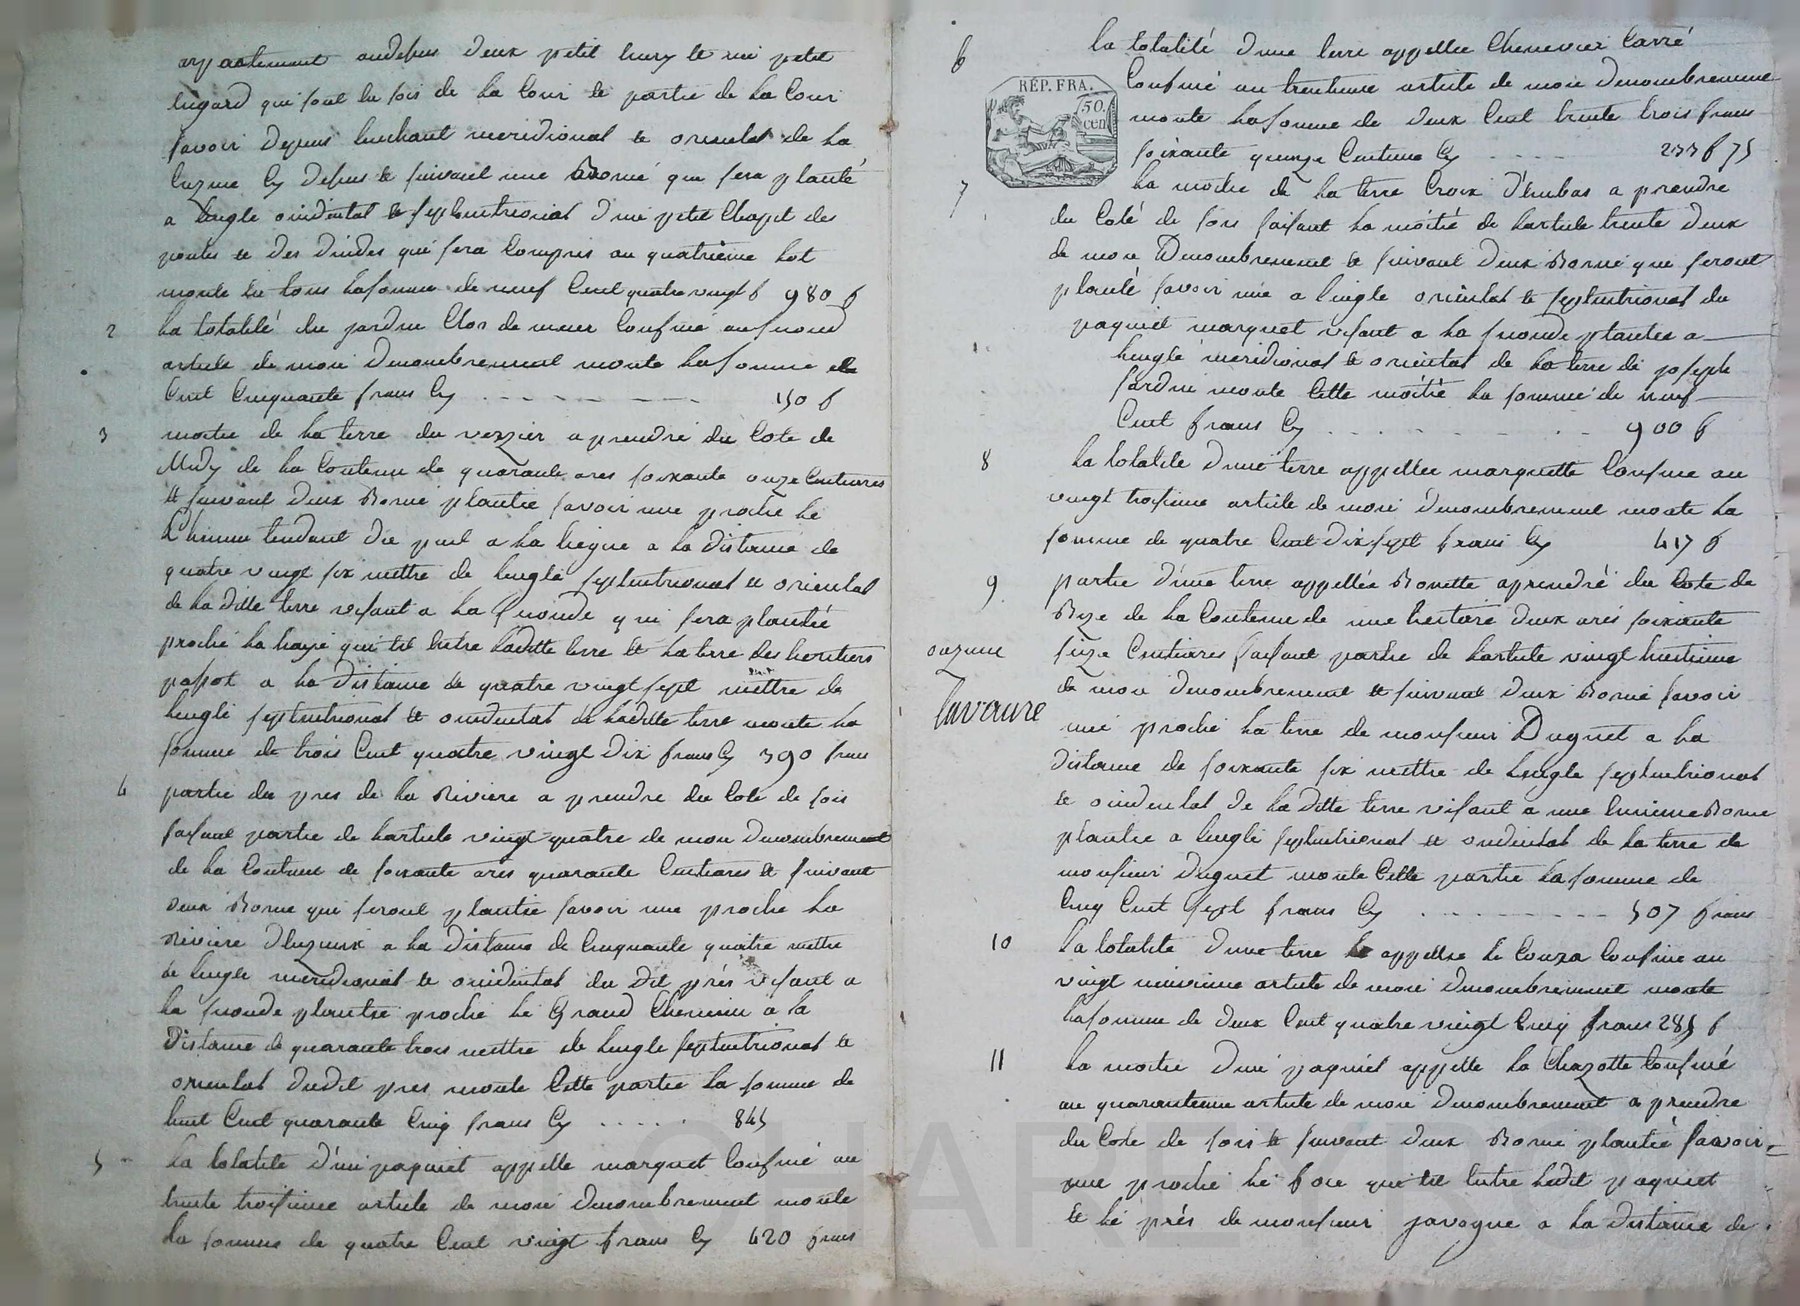 appartement audesus deux petit ecury et une petit
lugard qui sont la sois de la Cour et partie de la Cour
savoir depuis langlant meridional et oriental de la
et suivant une Borne qui sera planté
a langle oxidental et septentrional d'une petit Chapit des
poules et des dindes qui sera Compris au quatrième lot
monte en tous lasomme de neuf Cent quatre vingt f 980 f
2 La totalité du jardin Clos de meur Confiné au segond
article de mon denombrement monte lasomme de
Cent Cinquante frans Cy 150 f
3 moitie de la terre du verzier a prendre du Cote de
Midy de la Contenu de quarante ares soixante onze Centiares
et suivant deux Borne plantée savoir une proche le
Chemin tendant die puel a la liegue a la distance de
quatre vingt six mettre de lengle septentrional et oriental
de la ditte terre visant a la segonde qui sera plantée
proche la haye qui et entre laditte terre et la terre des heritiers
passot a la distance de quatre vingt sept mettre de
lengle septentrional et oxidental de laditte terre monte la
somme de trois Cent quatre vingt dix frans Cy 390 frans
4 partie du pres de la Riviere a prendre du Cote de sois
faisant partie de larticle vingt quatre de mon denombrement
de la Contenu de soixante ares quarante Centiares et suivant
deux Borne qui seront plantée savoir une proche la
Riviere dluzieux a la distance de Cinquante quatre mettre
de lengle meridional et oxidental du dit prés visant a
la segonde plantée proche le Grand Chemin a la
Distance de quarante trois mettre de lengle septentrional et
oriental dudit pres monte Cette partie la somme de
huit Cent quarante Cinq frans Cy 845
5 La totalite d'une paquiet appelle marquet Confiné au
trente troisieme article de mon denombrement monte
la somme de quatre Cent vingt frans Cy 420 frans
6 La totalité dune terre appellee Chenevier Carré
Confiné au trentieme article de mon denombrement
RÉP. FRA.
50.
cen
monte lasomme de deux Cent trente trois frans
soixante quinze Centime Cy 233 f 75
7 La moitie de la terre Croix d'Embas a prendre
du Coté de sois faisant la moitié de larticle trente deux
de mon Denombrement et suivant deux Borne qui seront
planté savoir une a lengle oriental et septentrional du
paquiet marquet visant a la segonde plantee a
lengle meridional et oriental de la terre de joseph
jardin monte Cette moitié la somme de neuf
Cent frans Cy 900 f
8 La totalite dune terre appellee marquette Confine au
vingt troisieme article de mon denombrement monte la
somme de quatre Cent dix sept frans Cy 417 f
9 partie d'une terre appellée Bonette aprendré du Cote de
Bize de la Contenue de une hectare deux ares soixante
seize Centiares faisant partie de larticle vingt huitieme
onzieme
de mon denombrement et suivant deux Borne savoir
Lavaure
une proche la terre de monsieur Duguet a la
distance de soixante six mettre de lengle septentrional
et oxidental de la ditte terre visant a une Enciene Borne
plantée a lengle septentrional et oxidental de la terre de
monsieur Duguet monte Cette partie lasomme de
Cinq Cent sept frans Cy 507 frans
10 La totalite dune terre appellee le Couza Confine au
vingt neuvieme article de mon denombrement monte
lasomme de deux Cent quatre vingt Cinq frans 285 f
11 La moitie dune paquiet appelle la Chazotte Confiné
au quarantieme article de mon denombrement a prendre
du Cote de sois et suivant deux Borne plantée savoir
une proche le foce qui et entre ledit paquiet
et le prés de monsieur javogue a la distance de